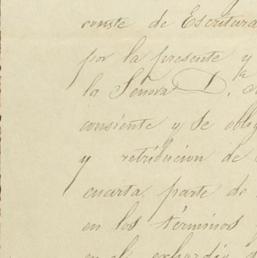 conste de Escritura
por la presente y
la Señora D.ª
consiente y se oblig
y retribucion de
cuarta parte de
en los términos
en el exhordio